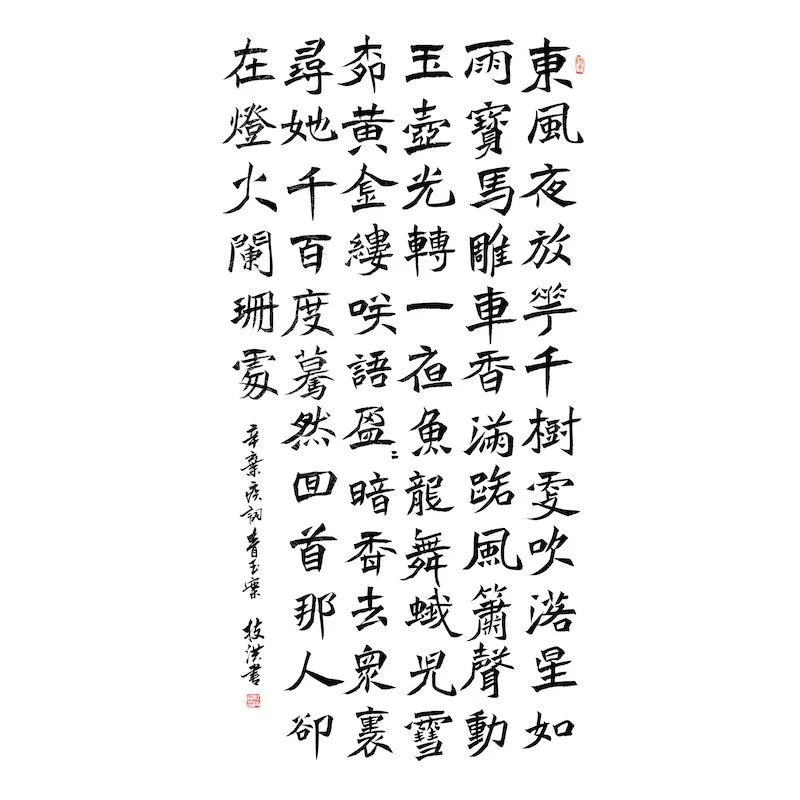 東風夜放花千樹更吹落星如
雨寶馬雕車香滿路風簫聲動
玉壺光轉一夜魚龍舞蛾兒雪
柳黃金縷咲語盈〻暗香去眾裏
尋她千百度驀然回首那人卻
在燈火闌珊處
辛棄疾詞青玉案 洪書